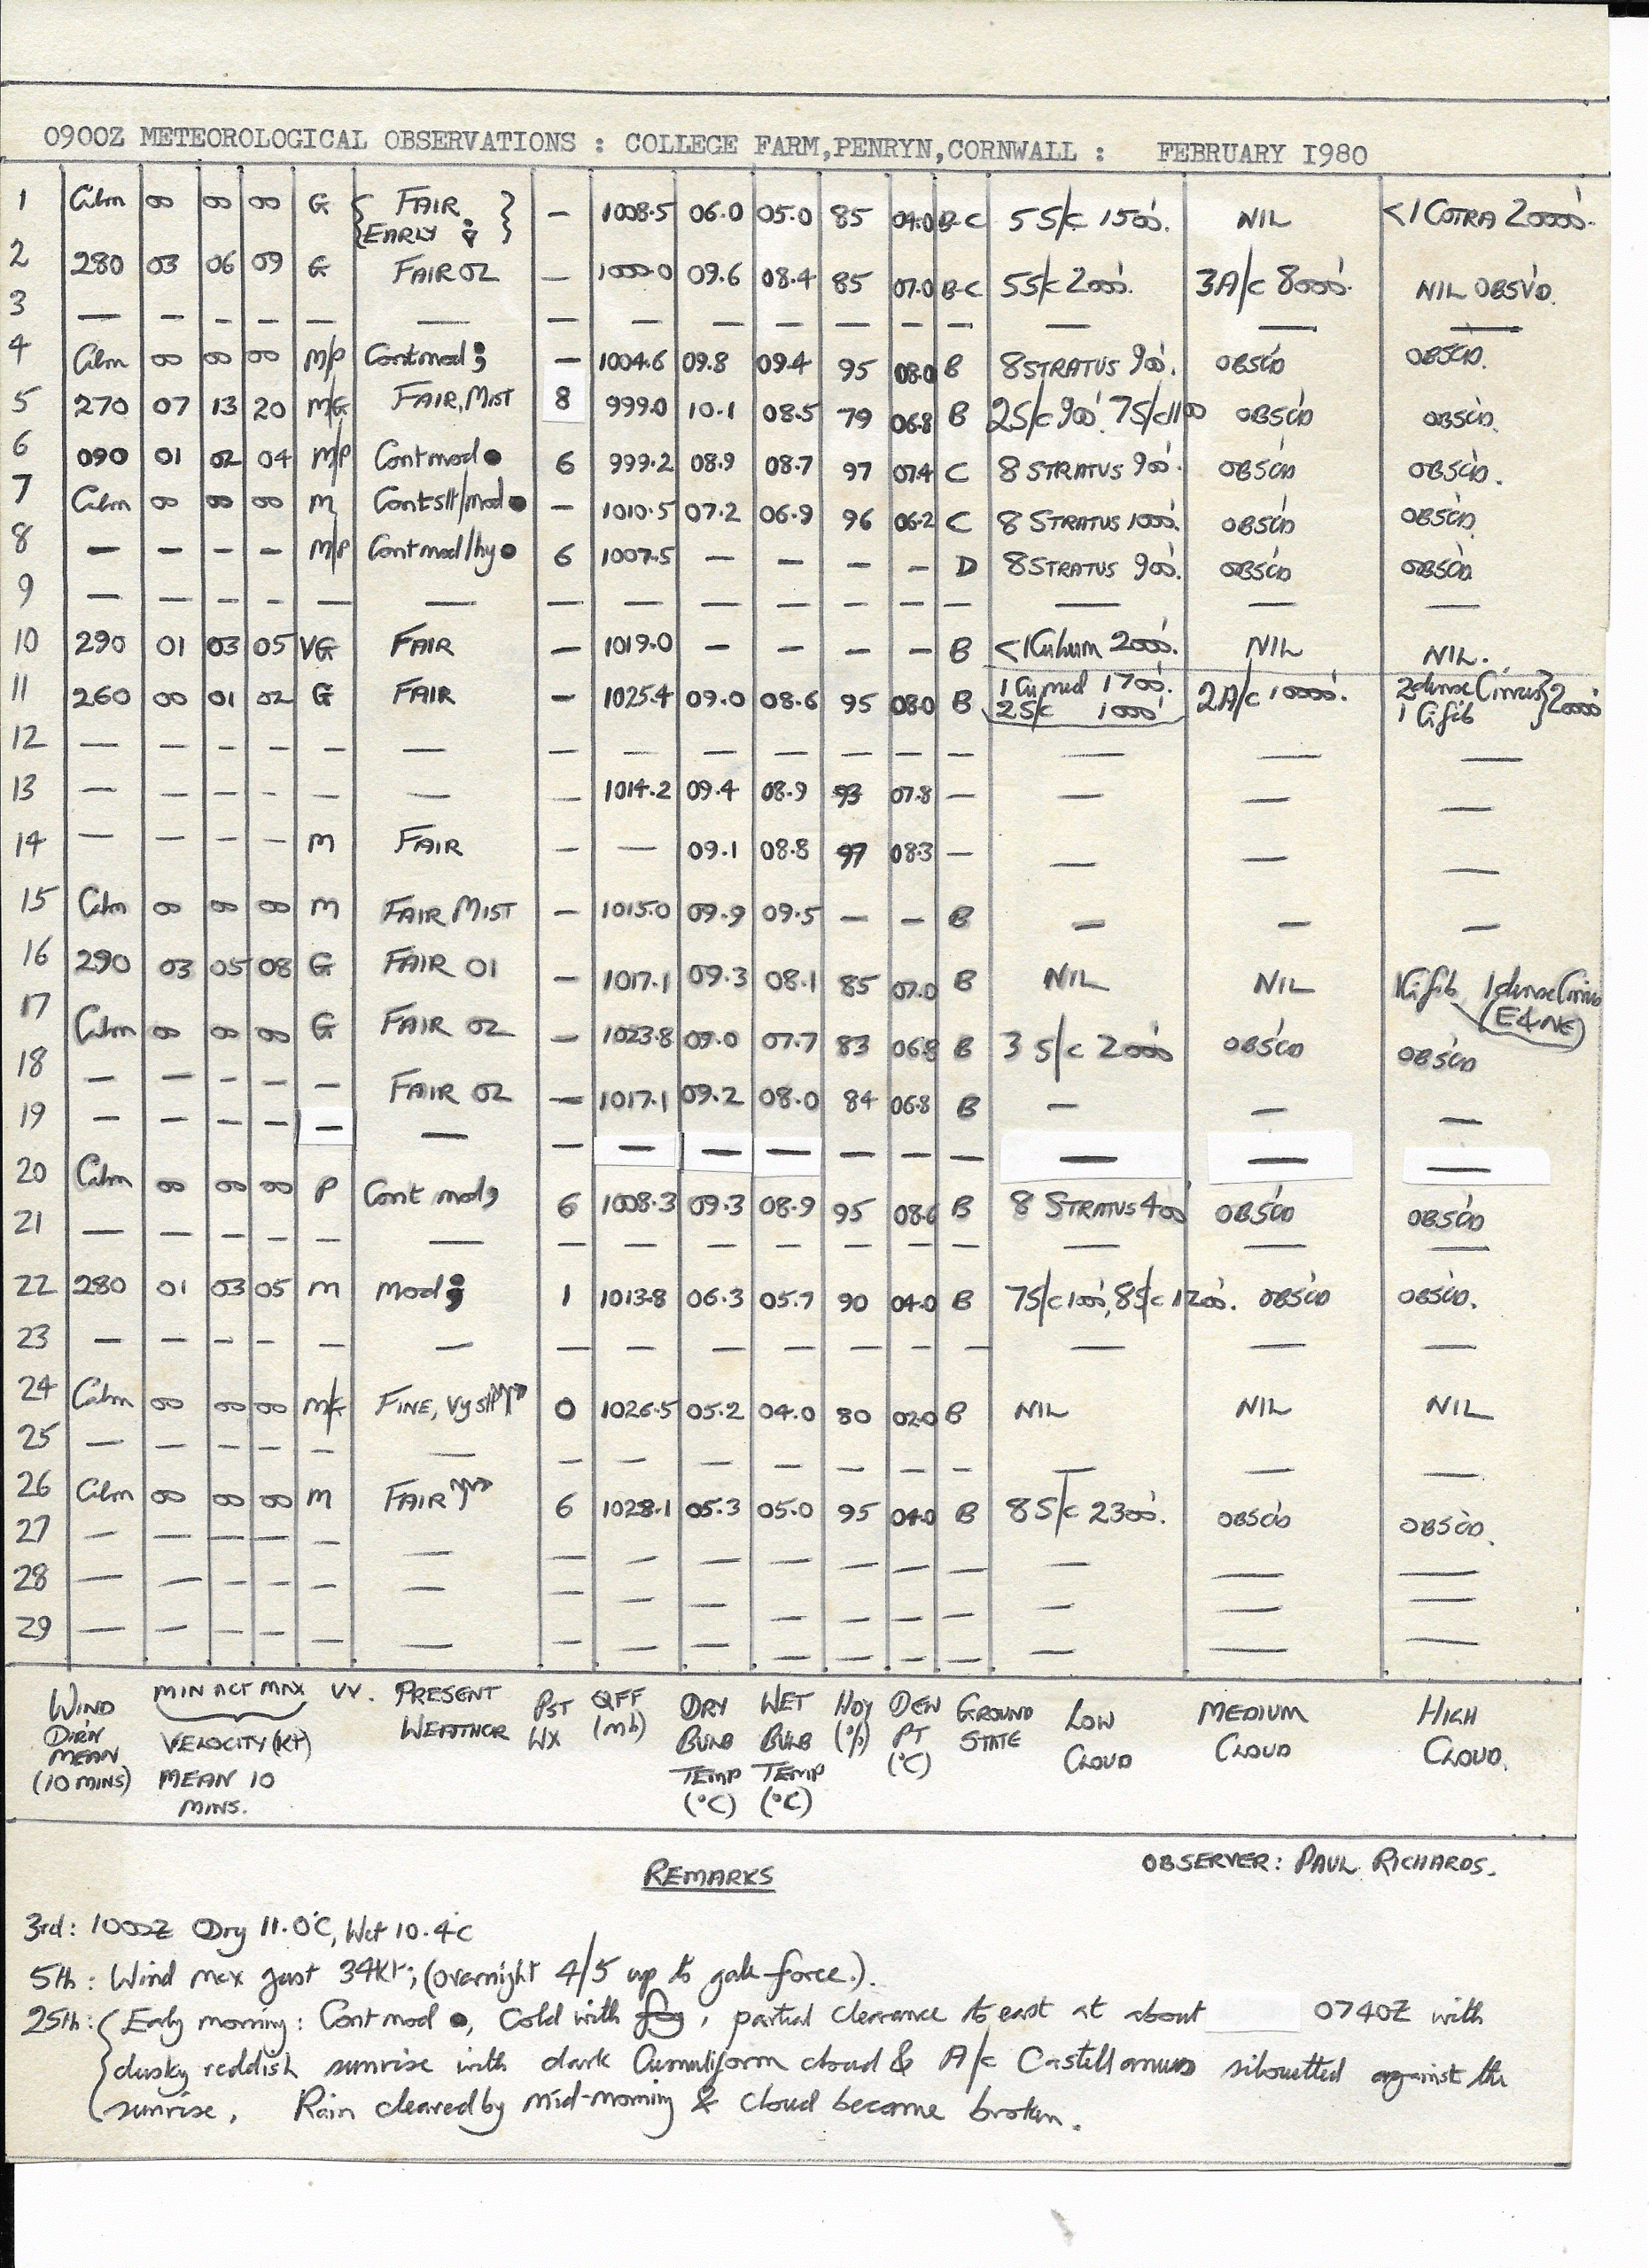 0900Z METEOROLOGICAL OBSERVATIONS : COLLEGE FARM,PENRYN,CORNWALL : FEBRUARY I980
1 Calm 00 00 00 G { FAIR, EARLY } — 1008.5 06.0 05.0 85 04.0 B-C 5 S/c 1500'. NIL <1 COTRA 20000'.
2 280 03 06 09 G FAIR 02 — 1000.0 09.6 08.4 85 07.0 B-C 5 S/c 2000'. 3 A/c 8000'. NIL OBSV'D.
3 — — — — — — — — — — — — — — — —
4 Calm 00 00 00 M/P Cont mod — 1004.6 09.8 09.4 95 08.0 B 8 STRATUS 900'. OBSC'D OBSC'D.
5 270 07 13 20 M/G FAIR, MIST 8 999.0 10.1 08.5 79 06.8 B 2 S/c 900'. 7 S/c 1100 OBSC'D OBSC'D.
6 090 01 02 04 M/P Cont mod ● 6 999.2 08.9 08.7 97 07.4 C 8 STRATUS 900'. OBSC'D OBSC'D.
7 Calm 00 00 00 M Cont slt/mod ● — 1010.5 07.2 06.9 96 06.2 C 8 STRATUS 1000'. OBSC'D OBSC'D.
8 — — — — M/P Cont mod/hy ● 6 1007.5 — — — — D 8 STRATUS 900'. OBSC'D OBSC'D
9 — — — — — — — — — — — — — — — —
10 290 01 03 05 VG FAIR — 1019.0 — — — — B <1 Cu hum 2000'. NIL NIL.
11 260 00 01 02 G FAIR — 1025.4 09.0 08.6 95 08.0 B 1 Cu med 1700'. 2 S/c 1000' 2 A/c 10000'. 2 dense Cirrus 1 Ci fib } 20000'
12 — — — — — — — — — — — — — — — —
13 — — — — — — — 1014.2 09.4 08.9 93 07.8 — — — —
14 — — — — M FAIR — — 09.1 08.8 97 08.3 — — — —
15 Calm 00 00 00 M FAIR MIST — 1015.0 09.9 09.5 — — B — — —
16 290 03 05 08 G FAIR 01 — 1017.1 09.3 08.1 85 07.0 B NIL NIL 1 Ci fib 1 dense Cirrus (E & NE)
17 Calm 00 00 00 G FAIR 02 — 1023.8 09.0 07.7 83 06.8 B 3 S/c 2000' OBSC'D OBSC'D
18 — — — — FAIR 02 — 1017.1 09.2 08.0 84 06.8 B — — —
19 — — — — — — — — — — — — — — — —
20 Calm 00 00 00 P Cont mod, 6 1008.3 09.3 08.9 95 08.6 B 8 STRATUS 400' OBSC'D OBSC'D
21 — — — — — — — — — — — — — — — —
22 280 01 03 05 M Mod 1 1013.8 06.3 05.7 90 04.0 B 7 S/c 1000', 8 S/c 1200'. OBSC'D OBSC'D.
23 — — — — — — — — — — — — — — — —
24 Calm 00 00 00 FINE, Vy slt 0 1026.5 05.2 04.0 80 02.0 B NIL NIL NIL
25 — — — — — — — — — — — — — — — —
26 Calm 00 00 00 M FAIR 6 1028.1 05.3 05.0 95 04.0 B 8 S/c 2300'. OBSC'D OBSC'D.
27 — — — — — — — — — — — — — — — —
28 — — — — — — — — — — — — — — — —
29 — — — — — — — — — — — — — — — —
WIND MIN ACT MAX VV. PRESENT PST QFF DRY WET HDY DEW GROUND LOW MEDIUM HIGH
DIR'N VELOCITY (KT) WEATHER WX (mb) BULB BULB (%) PT STATE CLOUD CLOUD CLOUD.
MEAN MEAN 10 TEMP TEMP (°C)
(10 MINS) MINS. (°C) (°C)
OBSERVER: PAUL RICHARDS.
REMARKS
3rd: 1000Z Dry 11.0°C, Wet 10.4°C
5th: Wind max gust 34kt; (overnight 4/5 up to gale force.).
25th: { Early morning: Cont mod ●, Cold with fog, partial clearance to east at about 0740Z with
dusky reddish sunrise with dark Cumuliform cloud & A/c Castellanus silouetted against the
sunrise. Rain cleared by mid-morning & cloud became broken.